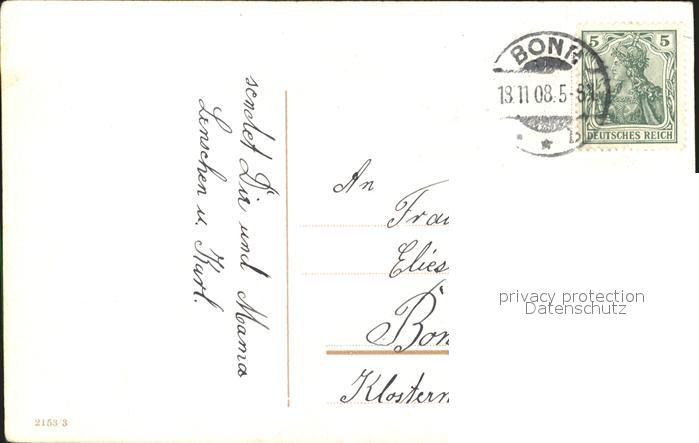 BONN
13.11.08.5-8N.
5 5
DEUTSCHES REICH
sendet Dir und Mama
Lenschen u. Karl.
An
Frau
Elies
Bon
Klostern
privacy protection
Datenschutz
2153/3